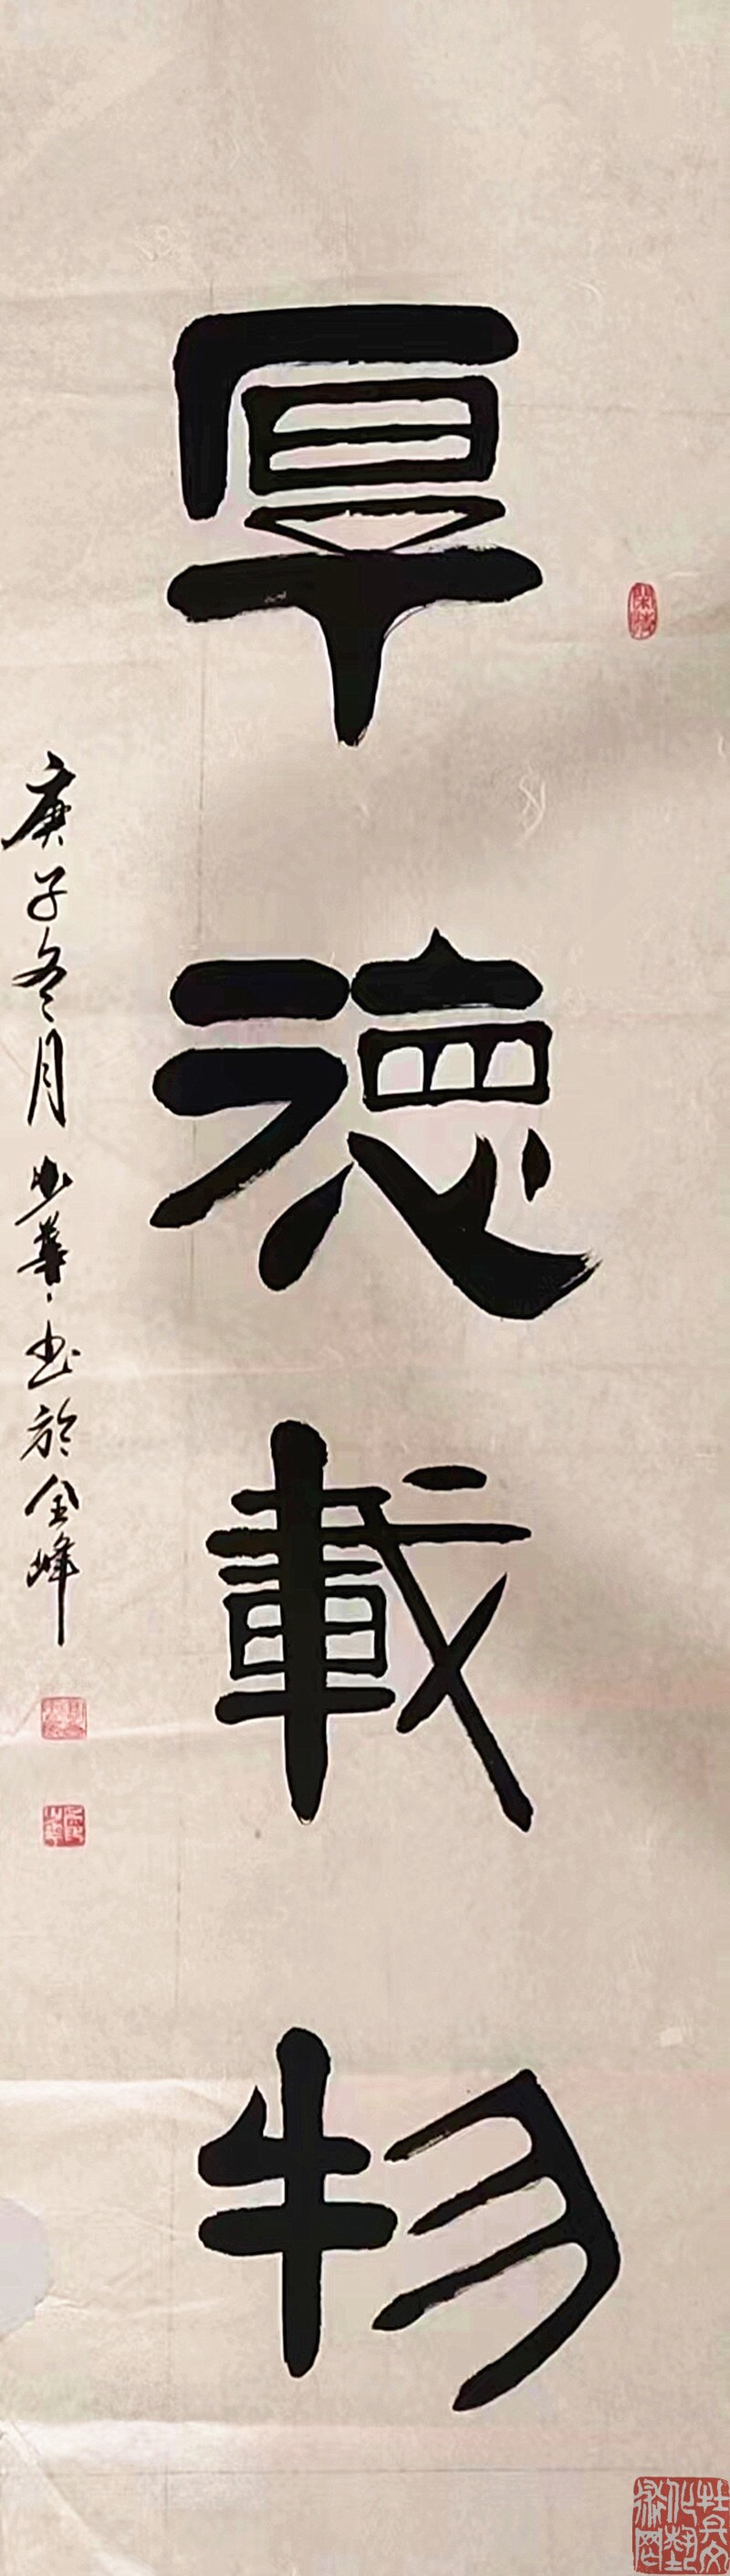 厚德載物
庚子冬月 少華书於金峰